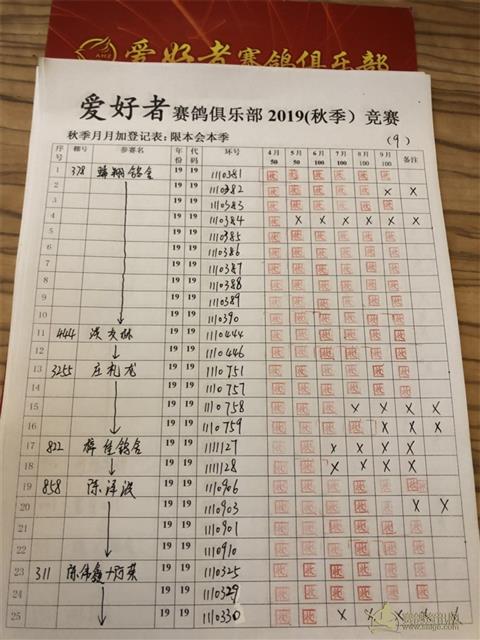 爱好者赛鸽俱乐部
爱好者赛鸽俱乐部2019(秋季)竞赛
秋季月月加登记表:限本会本季 (9)
序号 棚号 参赛名 年份 代码 环号 4月50 5月50 6月100 7月100 8月100 9月100 备注
1 378 翱翔鸽舍 19 19 1110381
2 19 19 1110382 X X
3 19 19 1110383
4 19 19 1110384 X X X X X X
5 19 19 1110385
6 19 19 1110386
7 19 19 1110387
8 19 19 1110388
9 19 19 1110389
10 19 19 1110390
11 444 19 19 1110444
12 19 19 1110446
13 3255 庄礼龙 19 19 1110751
14 19 19 1110757
15 19 19 1110758 X X X X
16 19 19 1110759 X X X X
17 822 19 19 1111127 X X X X
18 19 19 1111128 X X X X
19 858 陈泽波 19 19 1110906
20 19 19 1110903 X X
21 19 19 1110901
22 19 19 1110910
23 311 陈伟鑫+ 19 19 1110325
24 19 19 1110329
25 19 19 1110330 X X X X